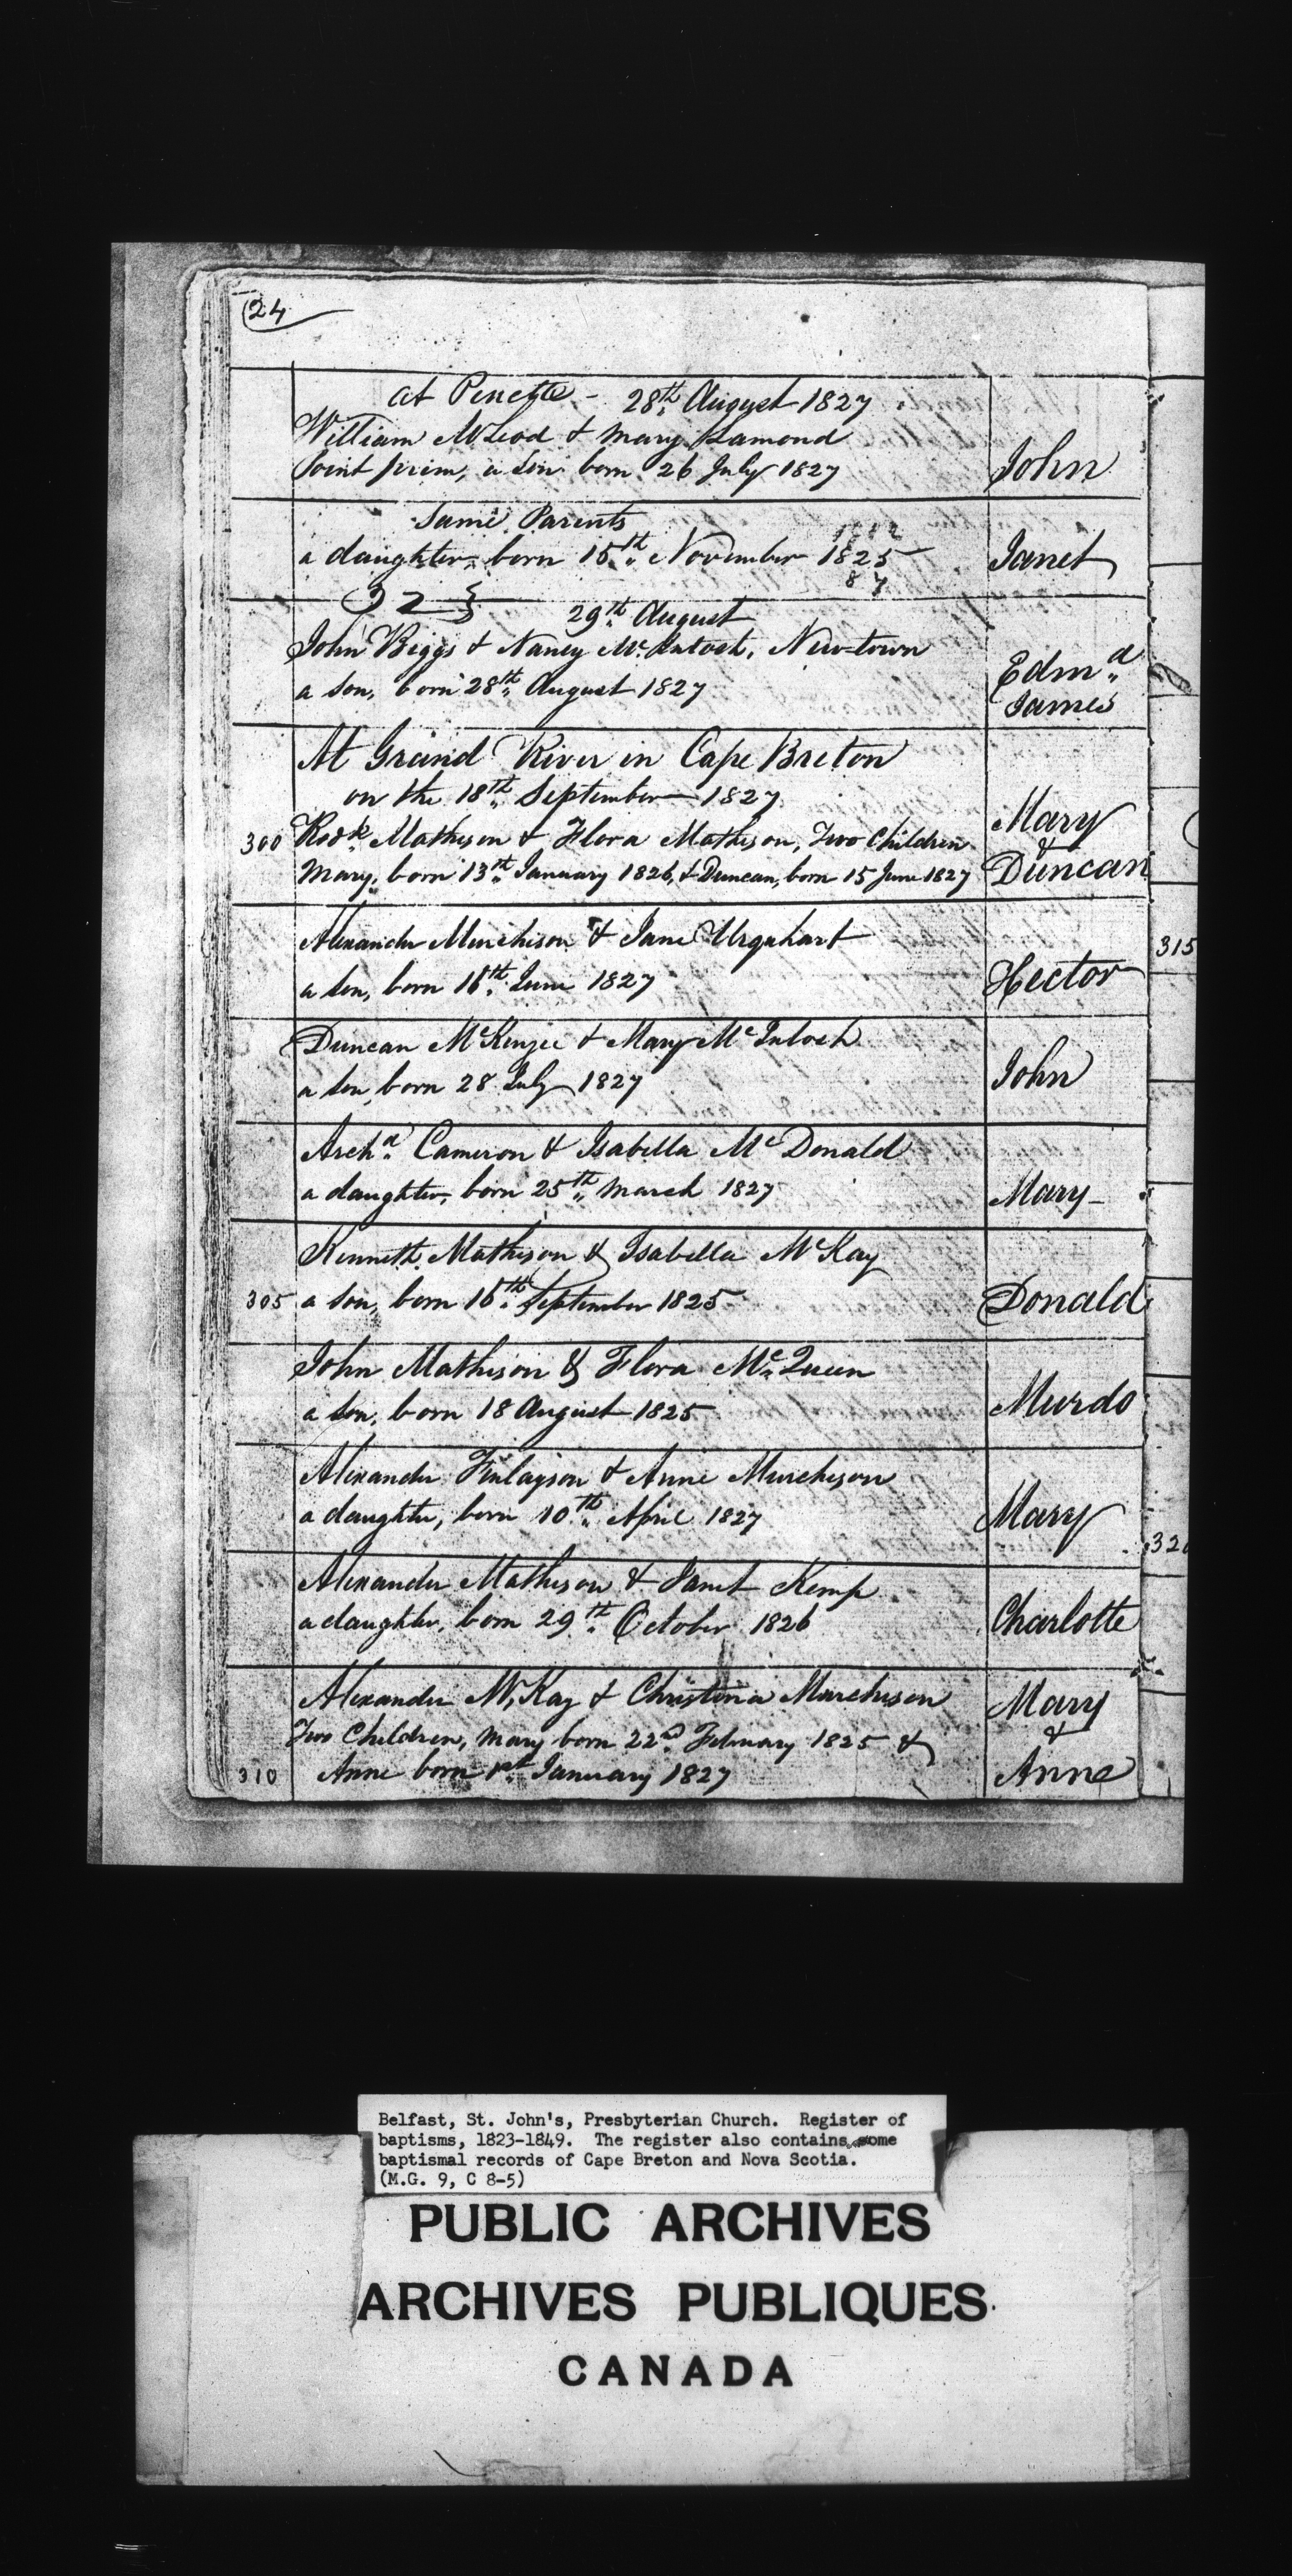 24
at Pinette - 28th August 1827
William McLeod & Mary Lamond
Point prim, a son born 26 July 1827
John
Same Parents
a daughter, born 15th November 1825
Janet
29th August
John Biggs & Nancy McIntosh, New-town
a son, born 28th August 1827
Edmd
James
At Grand River in Cape Breton
on the 18th September 1827
300 Rodk Matheson & Flora Matheson, Two Children
Mary, born 13th January 1826, & Duncan, born 15 June 1827
Mary
&
Duncan
Alexander Murchison & Jane Urquhart
a son, born 16th June 1827
Hector
315
Duncan McKenzie & Mary McIntosh
a son, born 28 July 1827
John
Archd Cameron & Isabella McDonald
a daughter, born 25th March 1827
Mary
Kenneth Matheson & Isabella McKay
305 a son, born 16th September 1825
Donald
John Matheson & Flora McQueen
a son, born 18 August 1825
Murdo
Alexander Finlayson & Anne Murchison
a daughter, born 10th April 1827
Mary
Alexander Matheson & Janet Kemp
a daughter, born 29th October 1826
Charlotte
Alexander McKay & Christina Murchison
Two Children, Mary born 22d February 1825 &
310 Anne born 1st January 1827
Mary
&
Anne
Belfast, St. John's, Presbyterian Church. Register of
baptisms, 1823-1849. The register also contains some
baptismal records of Cape Breton and Nova Scotia.
(M.G. 9, C 8-5)
PUBLIC ARCHIVES
ARCHIVES PUBLIQUES
CANADA